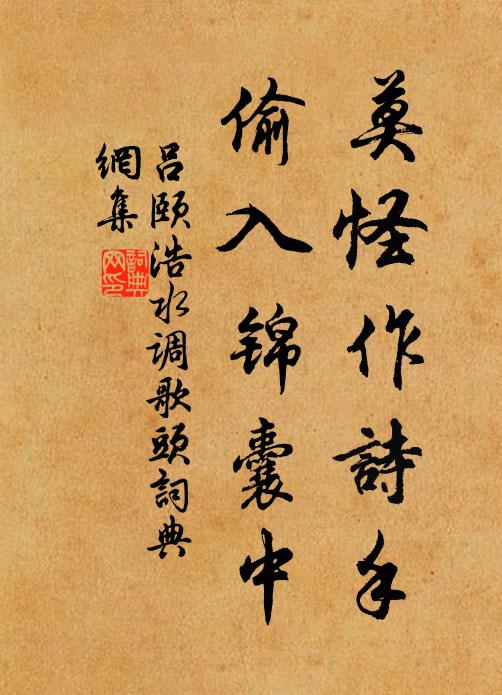 莫怪作詩手
偷入锦囊中
吕颐浩水调歌頭詞典
網集
詞典
网印